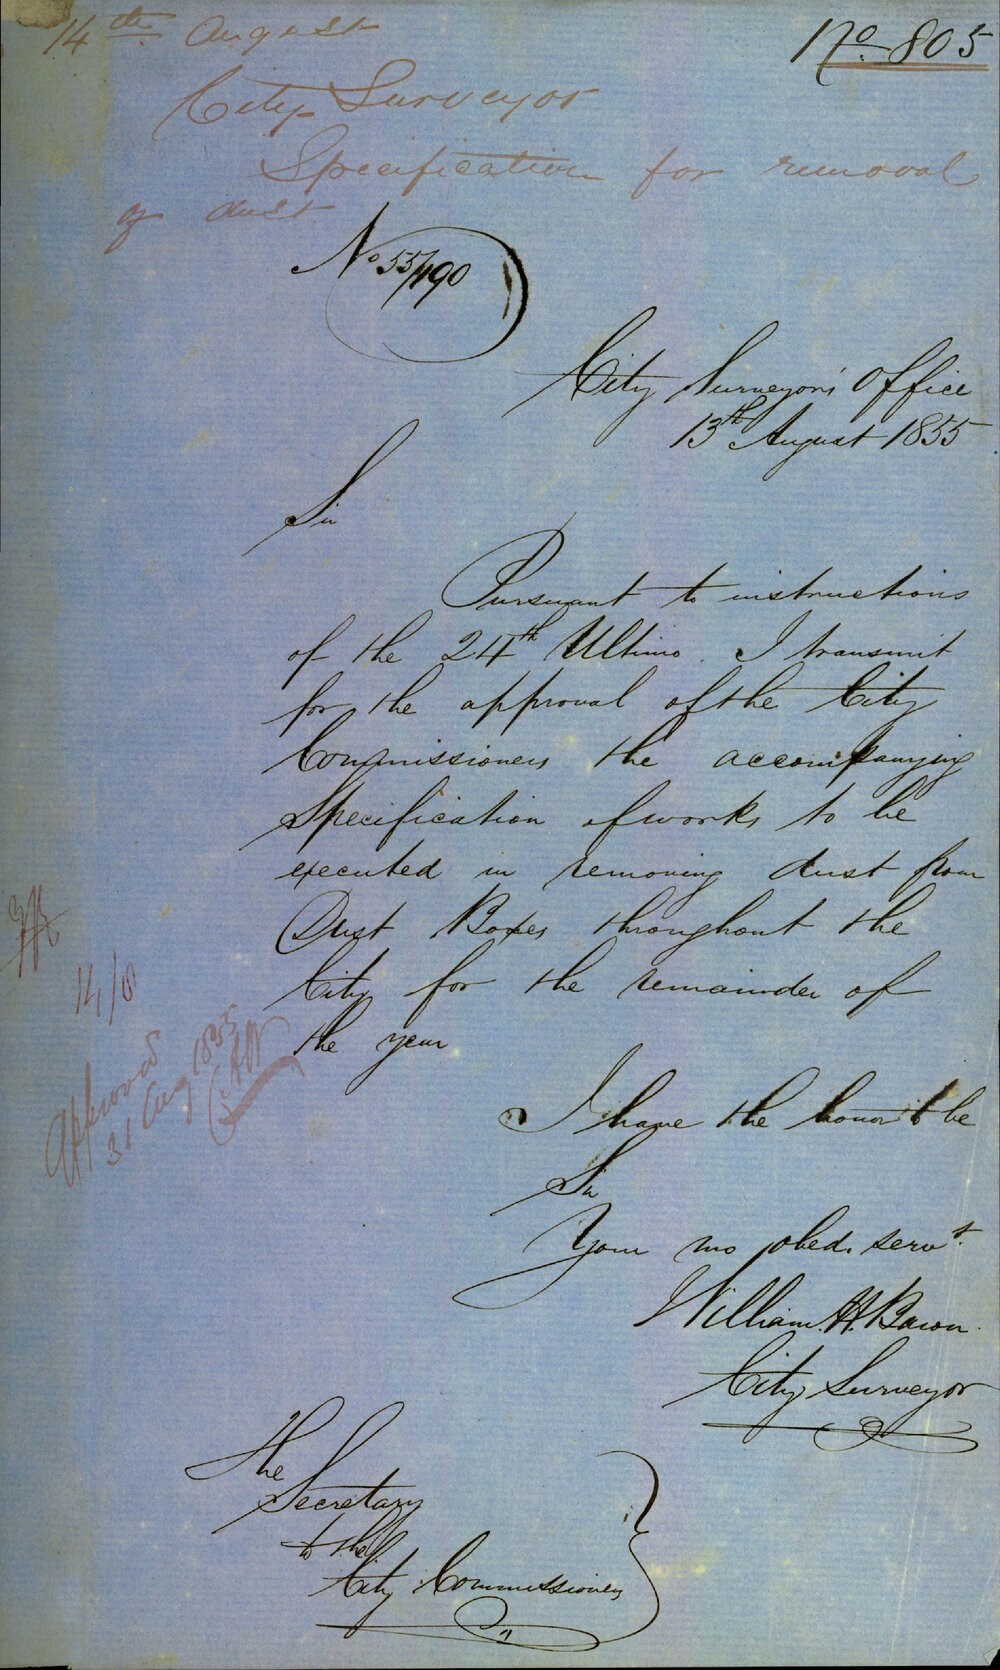 14th August
No. 805
City Surveyor
Specification for removal
of dust
No 55/490
City Surveyor's Office
13th August 1855
Sir
Pursuant to instructions
of the 24th Ultimo. I transmit
for the approval of the City
Commissioners the accompanying
Specification of works to be
executed in removing dust from
Dust Boxes throughout the
City for the remainder of
the year
14/8
Approved
31 Aug 1855
I have the honor to be
Sir
Your mo obed. servt.
William H. Bacon
City Surveyor
The
Secretary
to the
City Commissioners